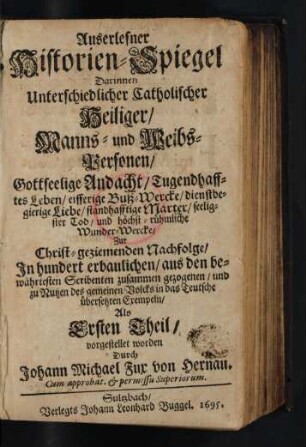 Auserlesner
Historien-Spiegel
Darinnen
Unterschiedlicher Catholischer
Heiliger/
Manns- und Weibs-
Personen/
Gottseelige Andacht/ Tugendhaff-
tes Leben/ eifferige Buß-Wercke/ dienstbe-
gierige Liebe/ standhafftige Marter/ seelig-
ster Tod/ und höchst-rühmliche
Wunder-Wercke/
Zur
Christ-geziemenden Nachfolge/
In hundert erbaulichen/ aus den be-
währtesten Scribenten zusammen gezogenen/ und
zu Nutzen des gemeinen Volcks in das Teutsche
übersetzten Exempeln/
Als
Ersten Theil/
vorgestellet worden
Durch
Johann Michael Fux von Hernau.
Cum approbat. & permissu Superiorum.
Sultzbach/
Verlegts Johann Leonhard Buggel. 1695.